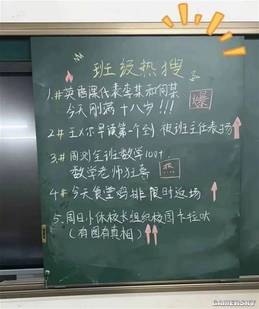 班级热搜
1.#英语课代表李某和何某
今天刚满十八岁!!! 爆
2.# 王从尔早读第个到 被班主任表扬
3.# 周刘全班数学100+
数学老师狂喜 热
4.# 今天食堂鸡排限时返场
5. 周日小休校长组织校园卡拉OK
(有图有真相)
GAMERSKY